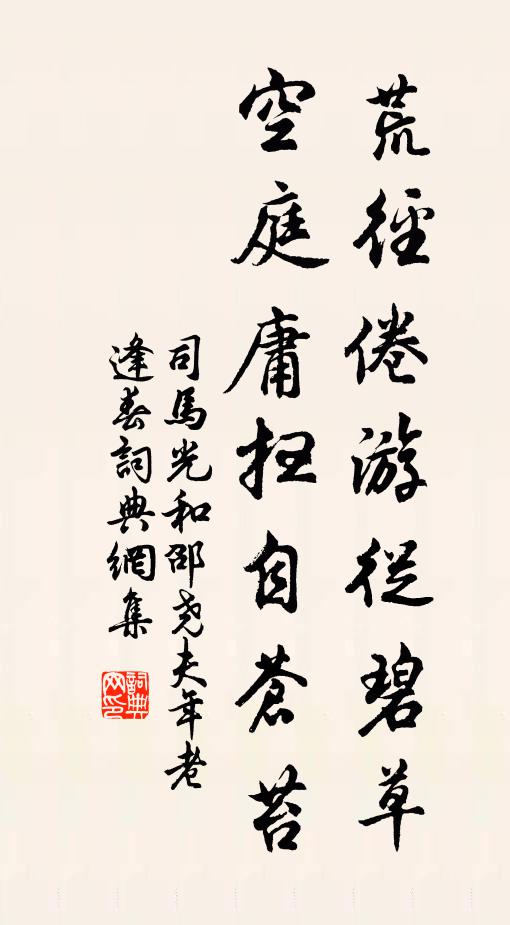 荒徑倦游從碧草
空庭庸扫自蒼苔
司馬光和邵尧夫年老
逢春詞典網集
詞典
网印